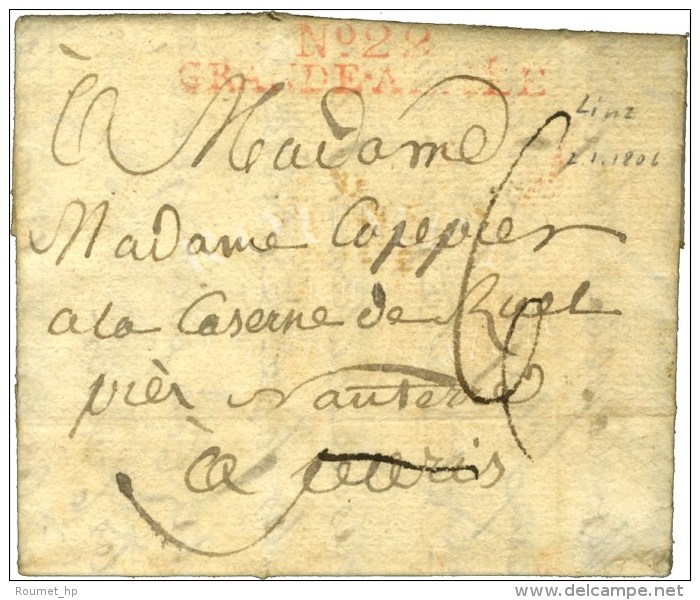 No 22
GRANDE-ARMÉE
Linz
2.1.1806
à Madame
Madame Coppier
a la Caserne de Ruel
près Nanterre
à paris
Roumet_hp
© delcampe.net